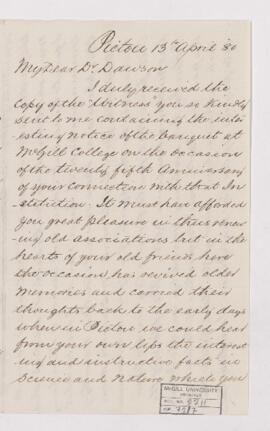 Pictou 13th April '80
My Dear Dr. Dawson
I duly received the
copy of the "Witness" you so kindly
sent to me containing the inter
esting notice of the Banquet at
McGill College on the occasion
of the twenty fifth Anniversary
of your connection with that In
stitution. It must have afforded
you great pleasure in thus renew
ing old associations but in the
hearts of your old friends here
the occasion has revived older
memories and carried their
thoughts back to the early days
when in Pictou we could hear
from your own lips the interest
ing and instructive facts in
Science and Nature which you
McGILL UNIVERSITY
ARCHIVES
ACC. NO.
REF.